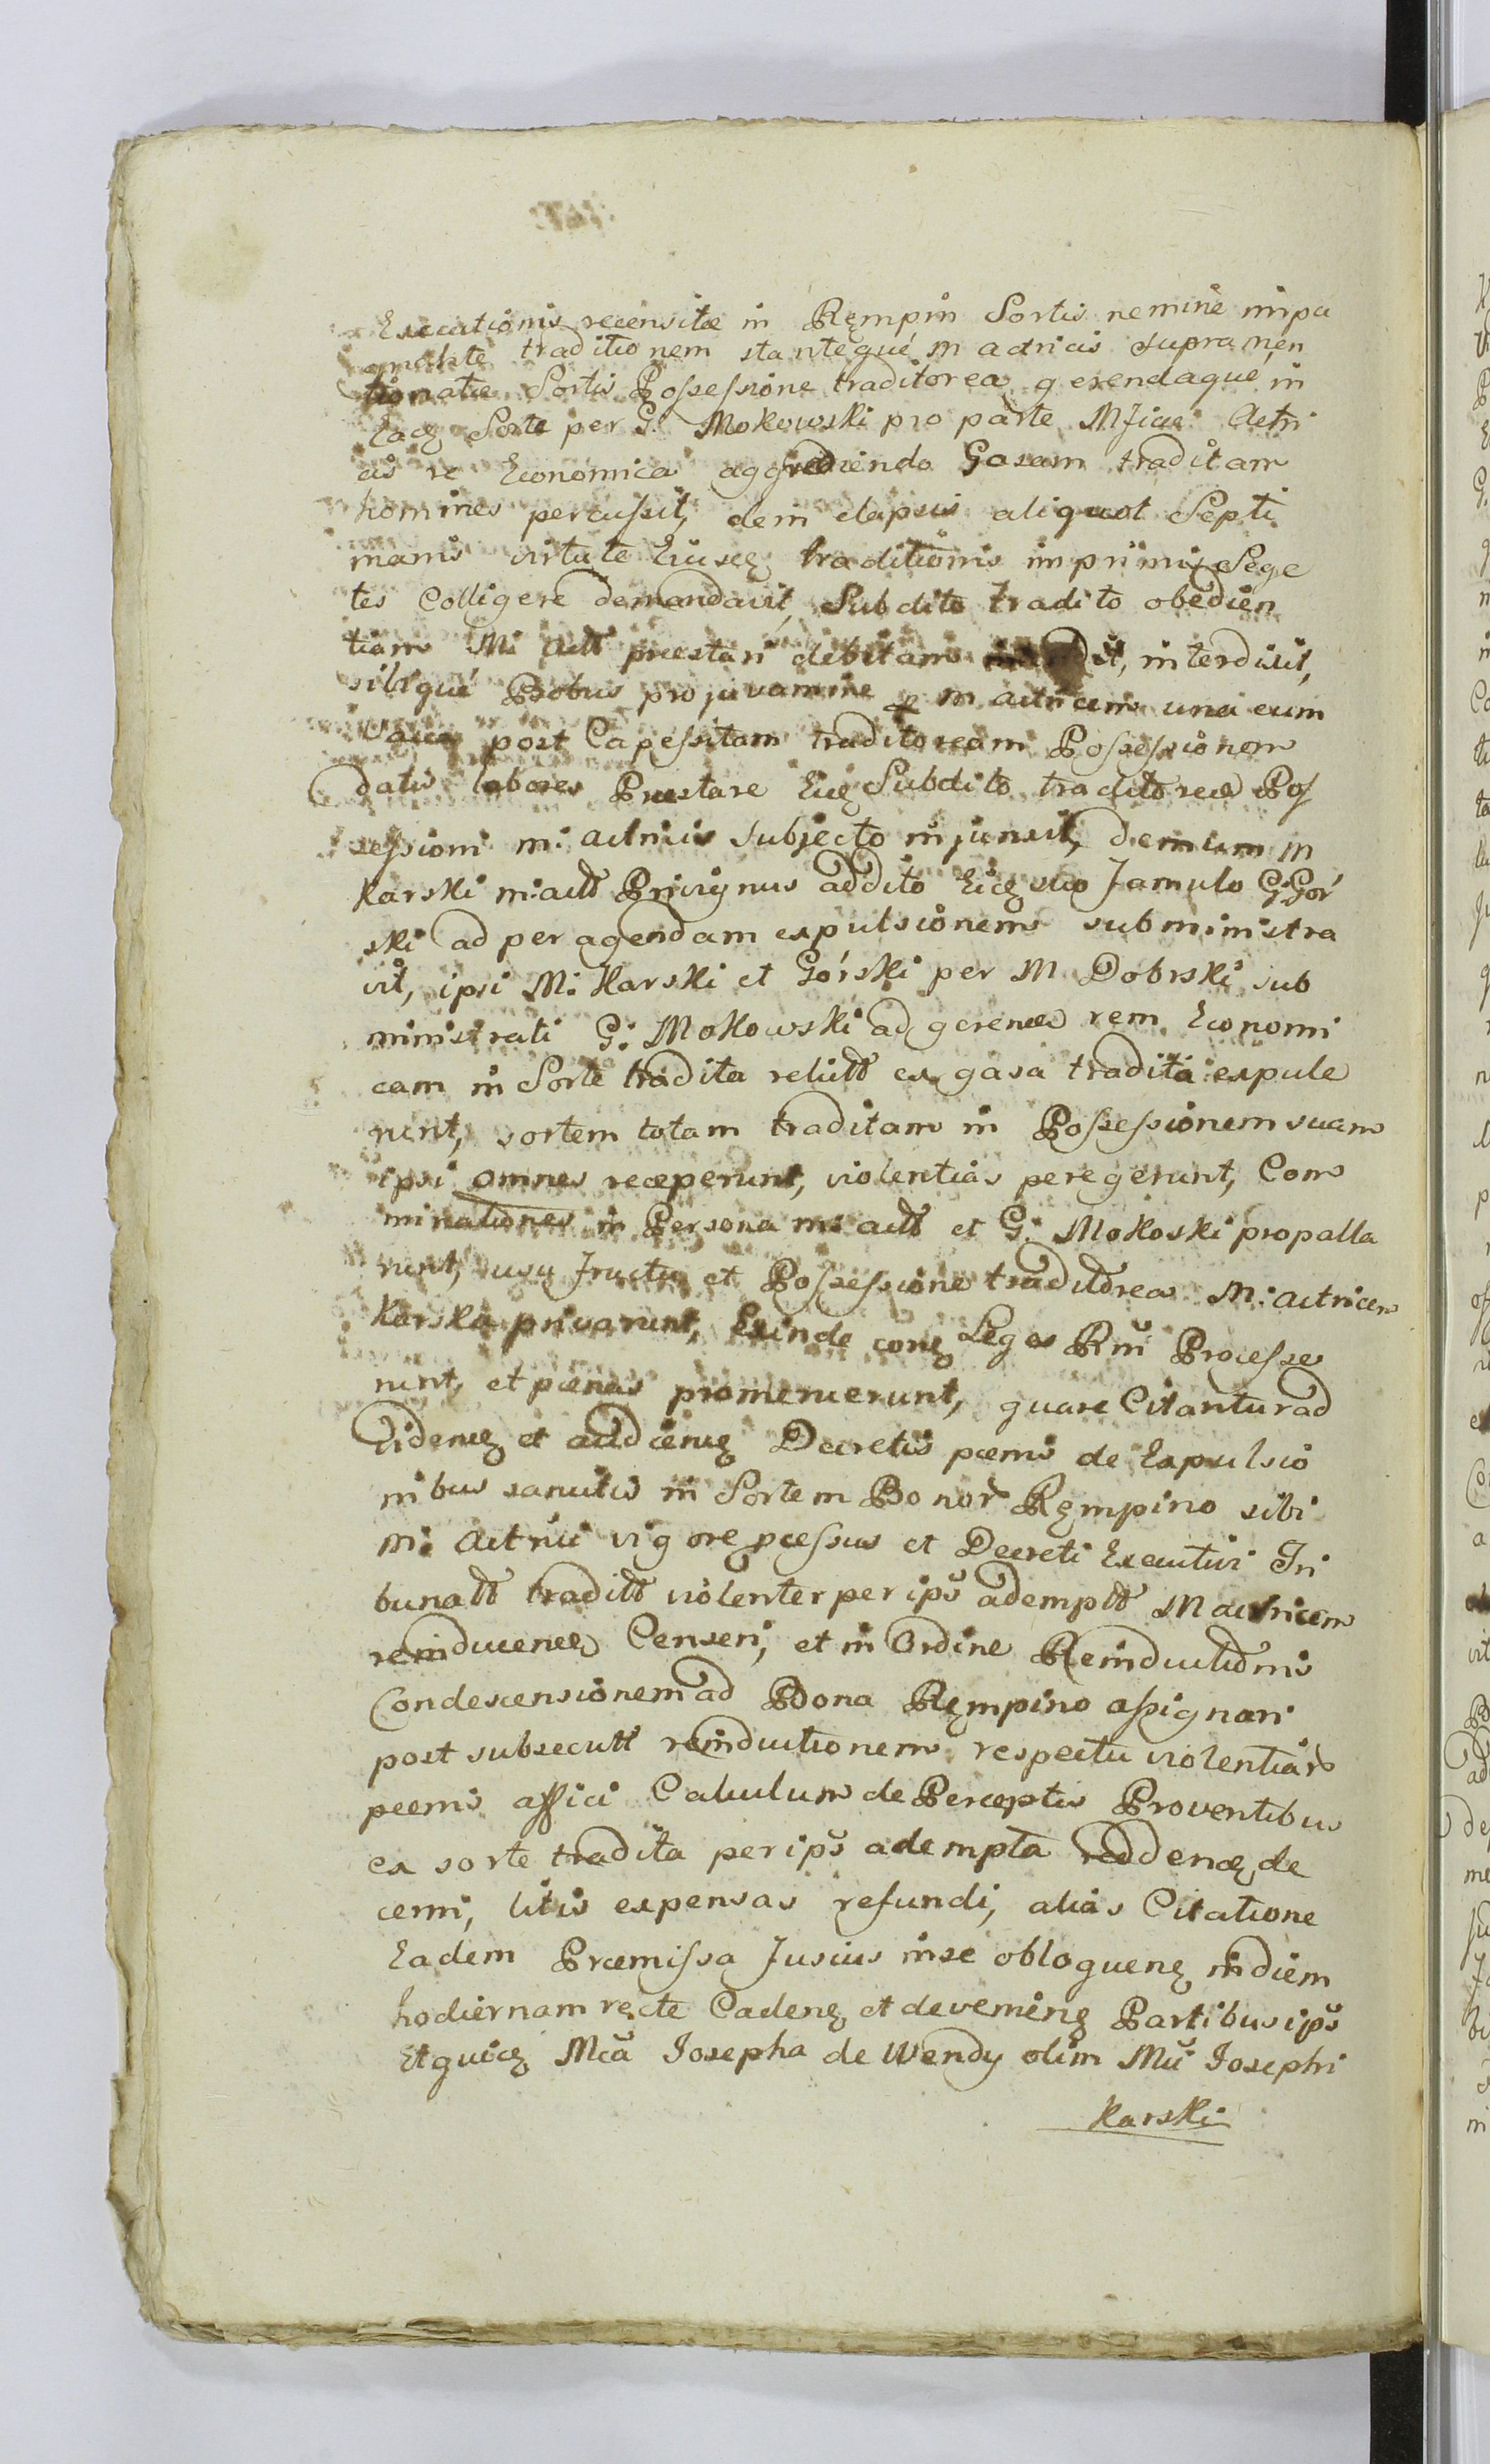 Executionis recensitæ in Rempin Sortis nemine impu
gnante traditionem stanteque M actricis supramen
tionatæ Sortis Possessione traditorea gerendaque in
Eadʒ Sorte per G. Mokowski pro parte Mficæ Actri
cis re Economica aggrediendo Gasam traditam
homines percussit, dein elapsis aliquot Septi
manis virtute Eiusdʒ traditionis imprimis Sege
tes Colligere demandavit, Subdito tradito obedien
tiam M: actt præstari debitam interdixit,
sibique Bobus pro juvamine p M actricem una cum
post Capessitam traditoream Possessionem
datis labores Præstare Eidʒ Subdito traditoreæ Pos
sessioni m: actricis subjecto injunxit, demum M
Karski m: actt Privignus addito Eidʒ suo famulo G: Gór
ski ad peragendam expulsionem subministra
vit, ipsi M: Karski et Górski per M Dobrski sub
ministrati G: Mokowski ad gerendʒ rem Economi
cam in Sorte tradita relictt ex gasa tradita expule
runt, sortem totam traditam in Possessionem suam
ipsi omnes receperunt, violentias peregerunt, Com
minationes in Persona m: actt et G: Mokoski propalla
runt, usu fructu et Possessione traditorea M: actricem
Karska privarunt, Exinde conʒ Leges Rni Processe
runt, et pœnas promeruerunt, quare Citantur ad
Videndʒ et audiendʒ Decretis pœnis de Expulsio
nibus sancitis in Sortem Bonor Rempino sibi
M: Actrici vigore pcessus et Decreti Executivi Tri
bunalt traditt violenter per ips ademptt M actricem
reinducendʒ Censeri, et in Ordine Reinductionis
Condescensionem ad Bona Rempino assignari
post subsecutt reinductionem respectu violentiar
pœnis affici Calculum de Perceptis Proventibus
ex sorte tradita per ips adempta reddendʒ de
cerni, litis expensas refundi, alias Citatione
Eadem Præmissa fusius in se obloquenʒ in diem
hodiernam recte Cadenʒ et devenienʒ Partibus ips
Et quidʒ Mca Josepha de Wendy olim Mci Josephi
Karski